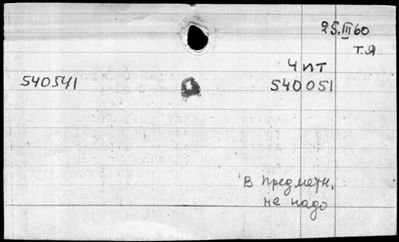 25.III 60
Т.Я
Чит
540541 540051
В предметн.
не надо